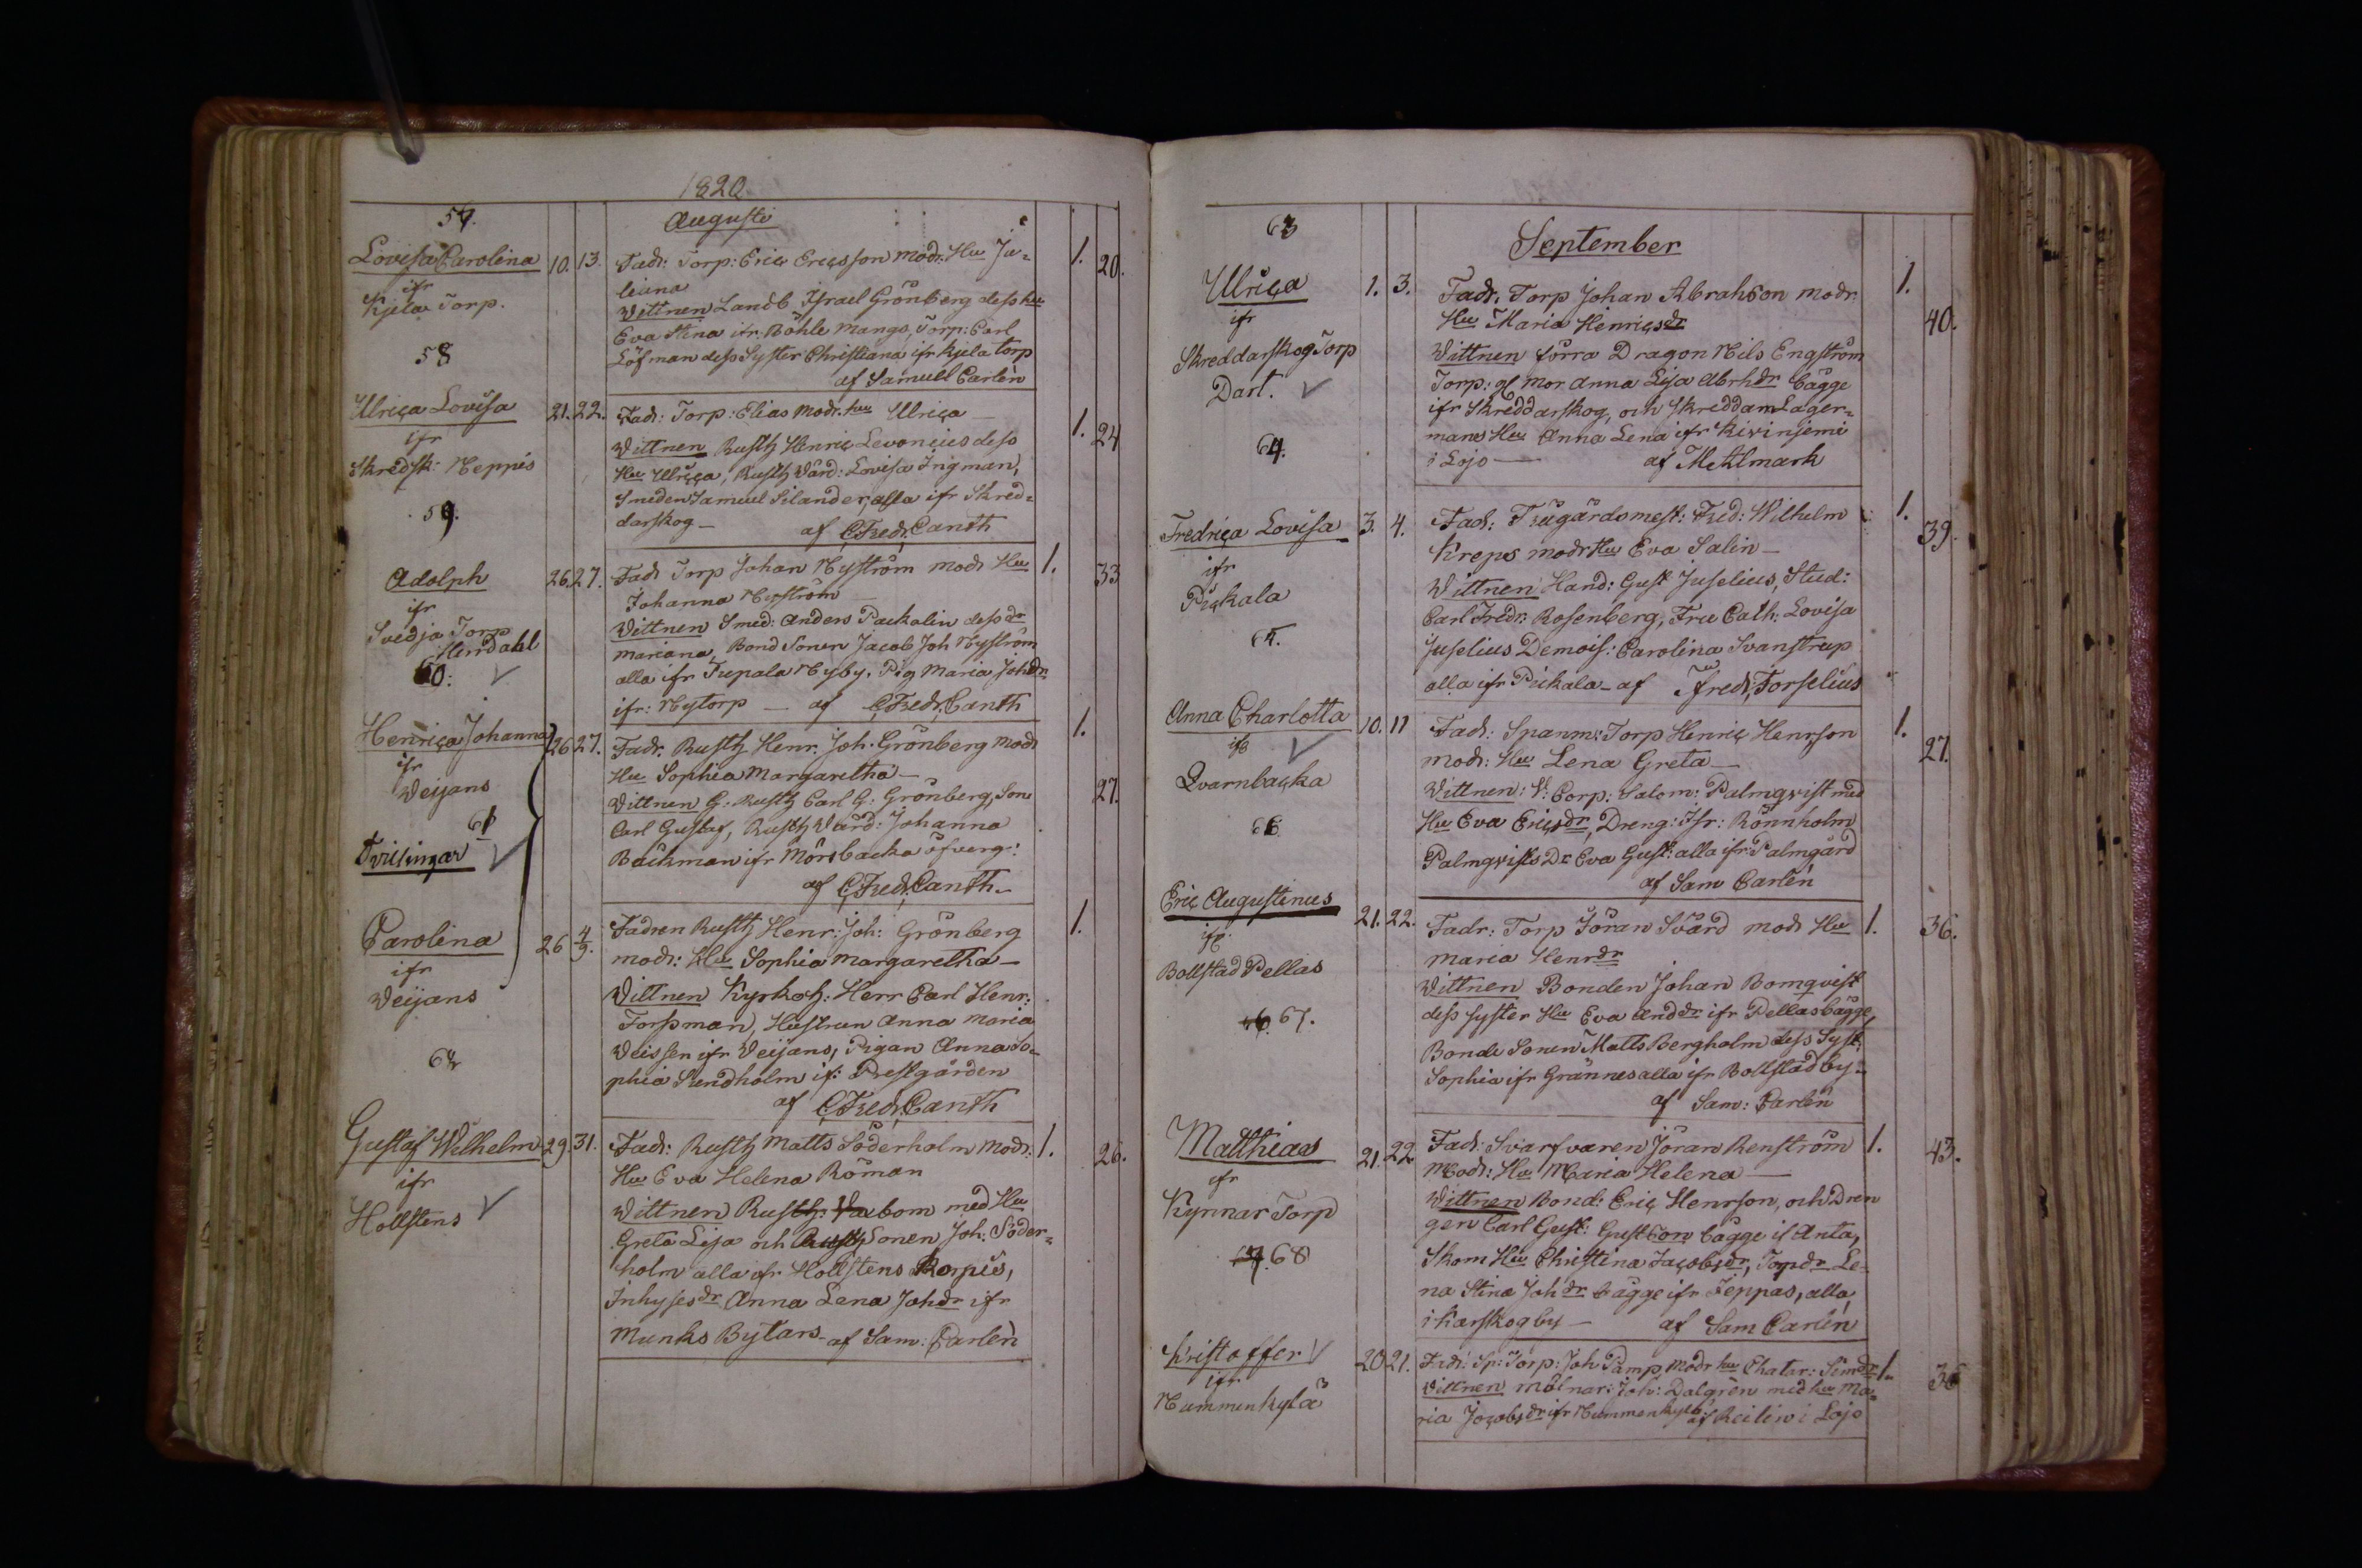 1820
Augusti
57.
Lovisa Carolina 10. 13. Fadr: Torp: Eric Ericsson modr. Hu Ju= 1. 20.
ifr liana
Kjela Torp. Wittnen Landb Israel Grönberg dess hu
Eva Stina ifr. Böhle Mangs, Torp: Carl
Löfman dess Syster Christiana ifr Kjela torp
af Samuel Carlén
58
Ulrica Lovisa 21. 22. Fadr: Torp: Elias Modr. hu Ulrica 1. 24
ifr Wittnen Rusth Henric Levoncius dess
Skredsk: Neppis Hu Ulrica, Rusth Wärd: Lovisa Frigman,
Smeden Samuel Silander, alla ifr Skred=
darskog — af CFredr. Canth
59.
Adolph 26. 27. Fadr Torp Johan Nyström modr Hu 1. 33
ifr Johanna Nyström
Svedja Torp Wittnen Smed: Anders Packalin dess dr
Hindahl Mariana, Bond Sonen Jacob Joh Nyström
alla ifr Trepala Nyby. Pig Maria Johdr
ifr: Nytorp — af CFredr. Canth
60:
Henrica Johanna 26 27. Fadr. Rusth Henr. Joh. Grönberg modr 1. 27.
ifr Hu Sophia Margaretha —
Weijans Wittnen G. Rusth Carl G: Grönberg, Son
Carl Gustaf, Rusth Wärd: Johanna
Bäckman ifr Mörsbacka öfverg:
af CFredr. Canth.
61
Tvillingar
Carolina 26 4/9. Fadren Rusth Henr: Joh: Grönberg 1.
ifr modr: Hu Sophia Margaretha —
Weijans Wittnen Kyrkoh: Herr Carl Henr:
Forssman, Hustrun Anna Maria
Weissen ifr Weijans, Pigan Anna So=
phia Sundholm if: Prestgården
af CFredr. Canth
62
Gustaf Wilhelm 29. 31. Fadr: Rusth Matts Söderholm Modr: 1. 26.
ifr Hu Eva Helena Röman
Hollstens Wittnen Rusth: bom med Hu
Greta Lisa och Rusth Sonen Joh: Söder=
holm alla ifr Hollstens Korpis,
Inhyses dr Anna Lena Johdr ifr
Munks Bytars — af Sam: Carlén
September
63
Ulrica 1. 3. Fadr. Torp Johan Abrahson modr. 1. 40.
ifr Hu Maria Henricsdr
Skreddarskog Torp Wittnen förra Dragon Nils Engström
Dart. Torp: gl mor Anna Lisa Abrhdr bägge
ifr Skreddarskog, och Skreddarn Lager=
mans Hu Anna Lena ifr Kivinjemi
i Lojo — af M Ahlmark
64.
Fredrica Lovisa 3. 4. Fadr: Trägårdsmest: Fred: Wilhelm 1. 39.
ifr Kreps modr Hu Eva Salin —
Pickala Wittnen Hand: Gust Juselius, Stud:
Carl Fredr: Rosenberg, Fru Cath: Lovisa
Juselius Demois: Carolina Svanstrup
alla ifr Pickala — af Fredr, Forselius
65.
Anna Charlotta 10. 11 Fadr: Spanm: Torp Henric Henrson 1. 27.
ifr modr: Hu Lena Greta —
Qvarnbacka Wittnen: V: Corp: Salom: Palmqvist med
Hu Eva Ericsdr, Dreng: Isr: Rönnholm
Palmqvists Dr Eva Gust: alla ifr Palmgård
af Sam Carlén
66
Eric Augustinus 21. 22. Fadr: Torp Jöran Svärd modr Hu 1. 36.
ifr Maria Henrdr
Bollstad Pellas Wittnen Bonden Johan Bomqvist
dess syster Hu Eva Anddr ifr Pellas bägge,
Bonde Sonen Matts Bergholm dess Syst:
Sophia ifr Grännes alla ifr Bollstad by —
af Sam: Carlén
67.
Matthias 21. 22. Fadr: Svarfvaren Jöran Renström 1. 43.
ifr Modr: Hu Maria Helena —
Kynnar Torp Wittnen Bond: Eric Henrson, och Dren
gen Carl Gust: Gustson bägge if Anta,
Skom Hu Christina Jacobsdr, Torpdr Le=
na Stina Johdr bägge ifr Jeppas, alla
i Karskog by — af Sam Carlén
68
Kristoffer 20 21. Fadr: Sp: Torp: Joh Pamp modr hu Chatar: Simdr 1. 36
ifr Wittnen Mölnar: Joh: Dalgrén med hu Ma=
Nummenkylä ria Jacobsdr ifr Nummenkylä af Reilin i Lojo